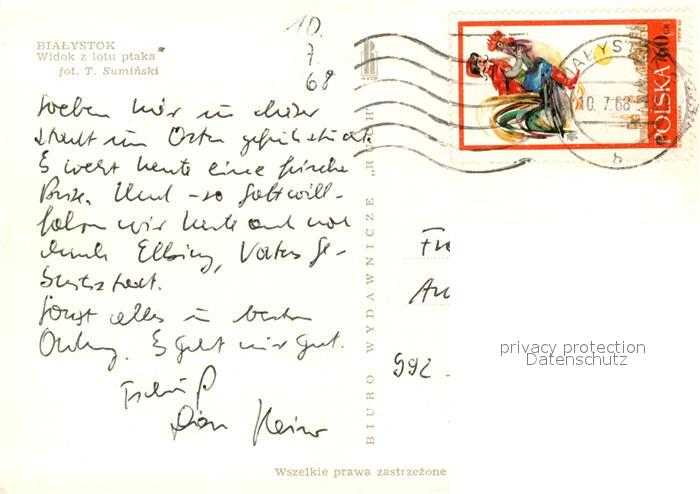 BIAŁYSTOK
Widok z lotu ptaka
fot. T. Sumiński
10.
7.
68
Soeben hier in dieser
Stadt im Osten gefrühstückt.
Es weht heute eine frische
Brise. Und – so Gott will –
fahren wir heute auch noch
durch Elbing, Vaters Ge-
burtsstadt.
Sonst alles in bester
Ordnung. Es geht mir gut.
Tschüß
Dein Heiner
BIURO WYDAWNICZE „RUCH"
POLSKA 60 GR
10.7.68
992 -
privacy protection
Datenschutz
Wszelkie prawa zastrzeżone